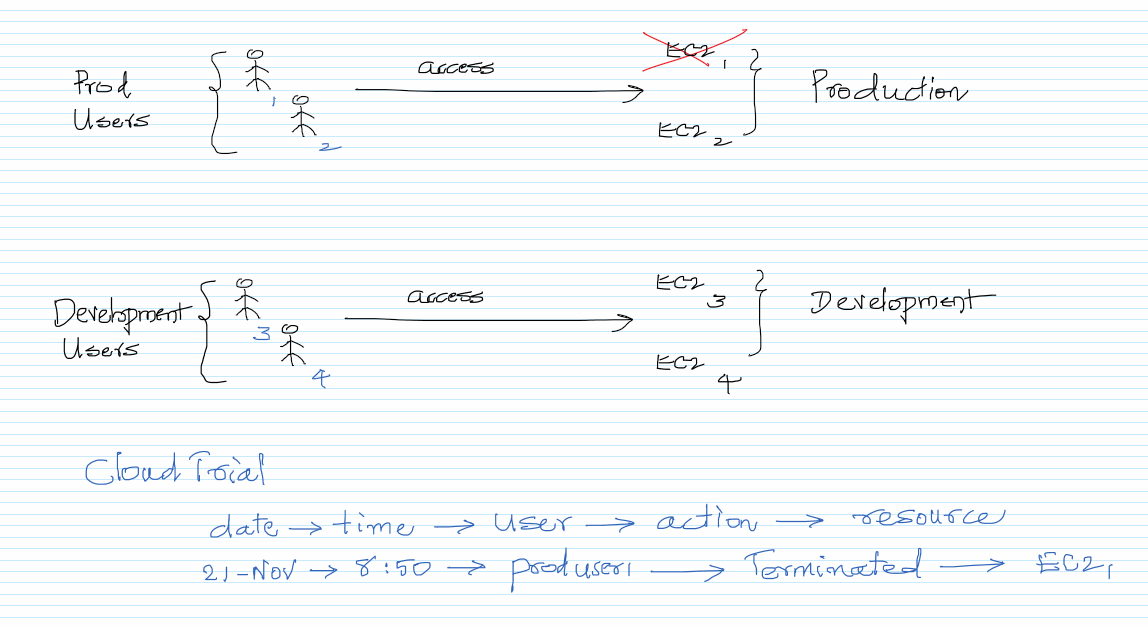 Prod
Users
1
2
access
EC2 1
EC2 2
Production
Development
Users
3
4
access
EC2 3
EC2 4
Development
Cloud Trial
date → time → user → action → resource
21-Nov → 8:50 → produser1 → Terminated → EC2 1